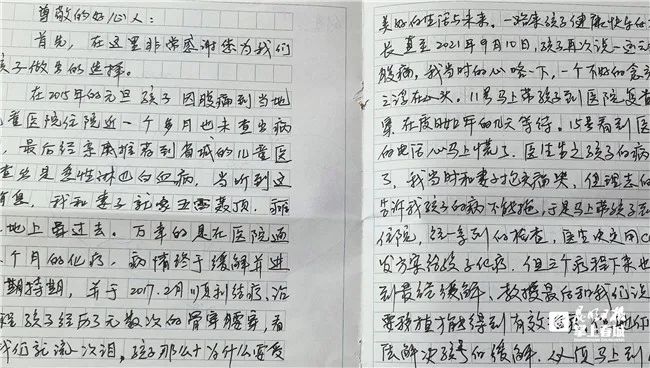 尊敬的好心人：
首先，在这里非常感谢您为我们
孩子做出的选择。
在2015年的元旦孩子因腹痛到当地
儿童医院住院近一个多月也未查出病
，最后经亲属推荐到省城的儿童医
查出是急性淋巴白血病，当听到这
消息，我和妻子就象五雷轰顶，
地上晕过去。万幸的是在医院通
个月的化疗，病情终于缓解并进
期持期，并于2017.2月顺利结疗，治
程孩子经历了无数次的骨穿腰穿，看
我们就流一次泪，孩子那么小为什么要受
美好的生活与未来。一路来孩子健康快乐的
长直至2021年9月10日，孩子再次说
腹痛，我当时的心咯一下，一个不好的念
在心头。11号马上带孩子到医院复查
果，在度日如年的几天等待。15号看到医
的电话心马上慌了，医生告之孩子的病
了，我当时和妻子抱头痛哭，但理志
告诉我孩子的病不能拖，于是马上带孩子到
住院，经一系列的检查，医生决定用
发方案给孩子化疗。但三个疗程下来也
到最终缓解，教授最后和我们说
要移植才能得到有效
法解决孩子的缓解，
晨网日报
掌上春城